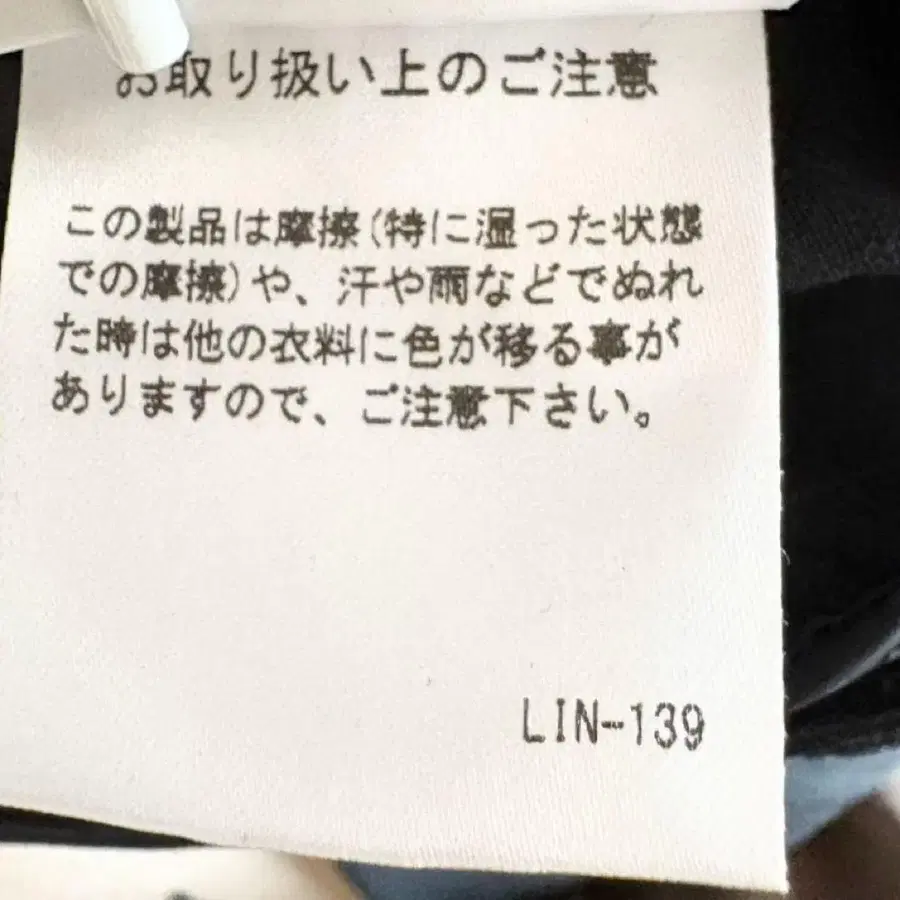 お取り扱い上のご注意
この製品は摩擦(特に湿った状態
での摩擦)や、汗や雨などでぬれ
た時は他の衣料に色が移る事が
ありますので、ご注意下さい。
LIN-139